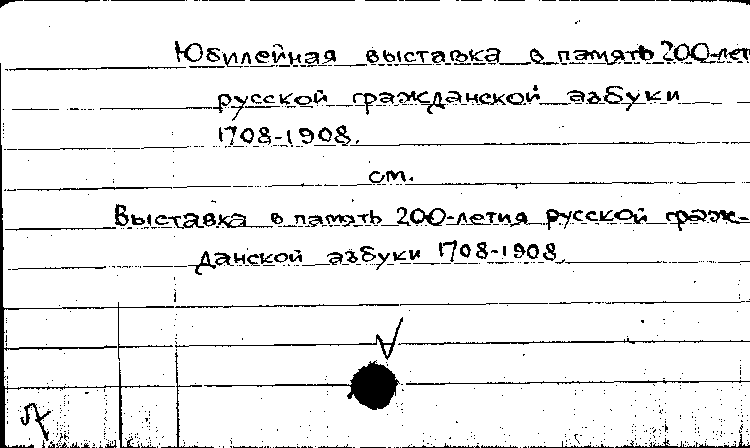 Юбилейная выставка в память 200-лет
русской гражданской азбуки
1708-1908.
см.
Выставка в память 200-летия русской граж-
данской азбуки 1708-1908.